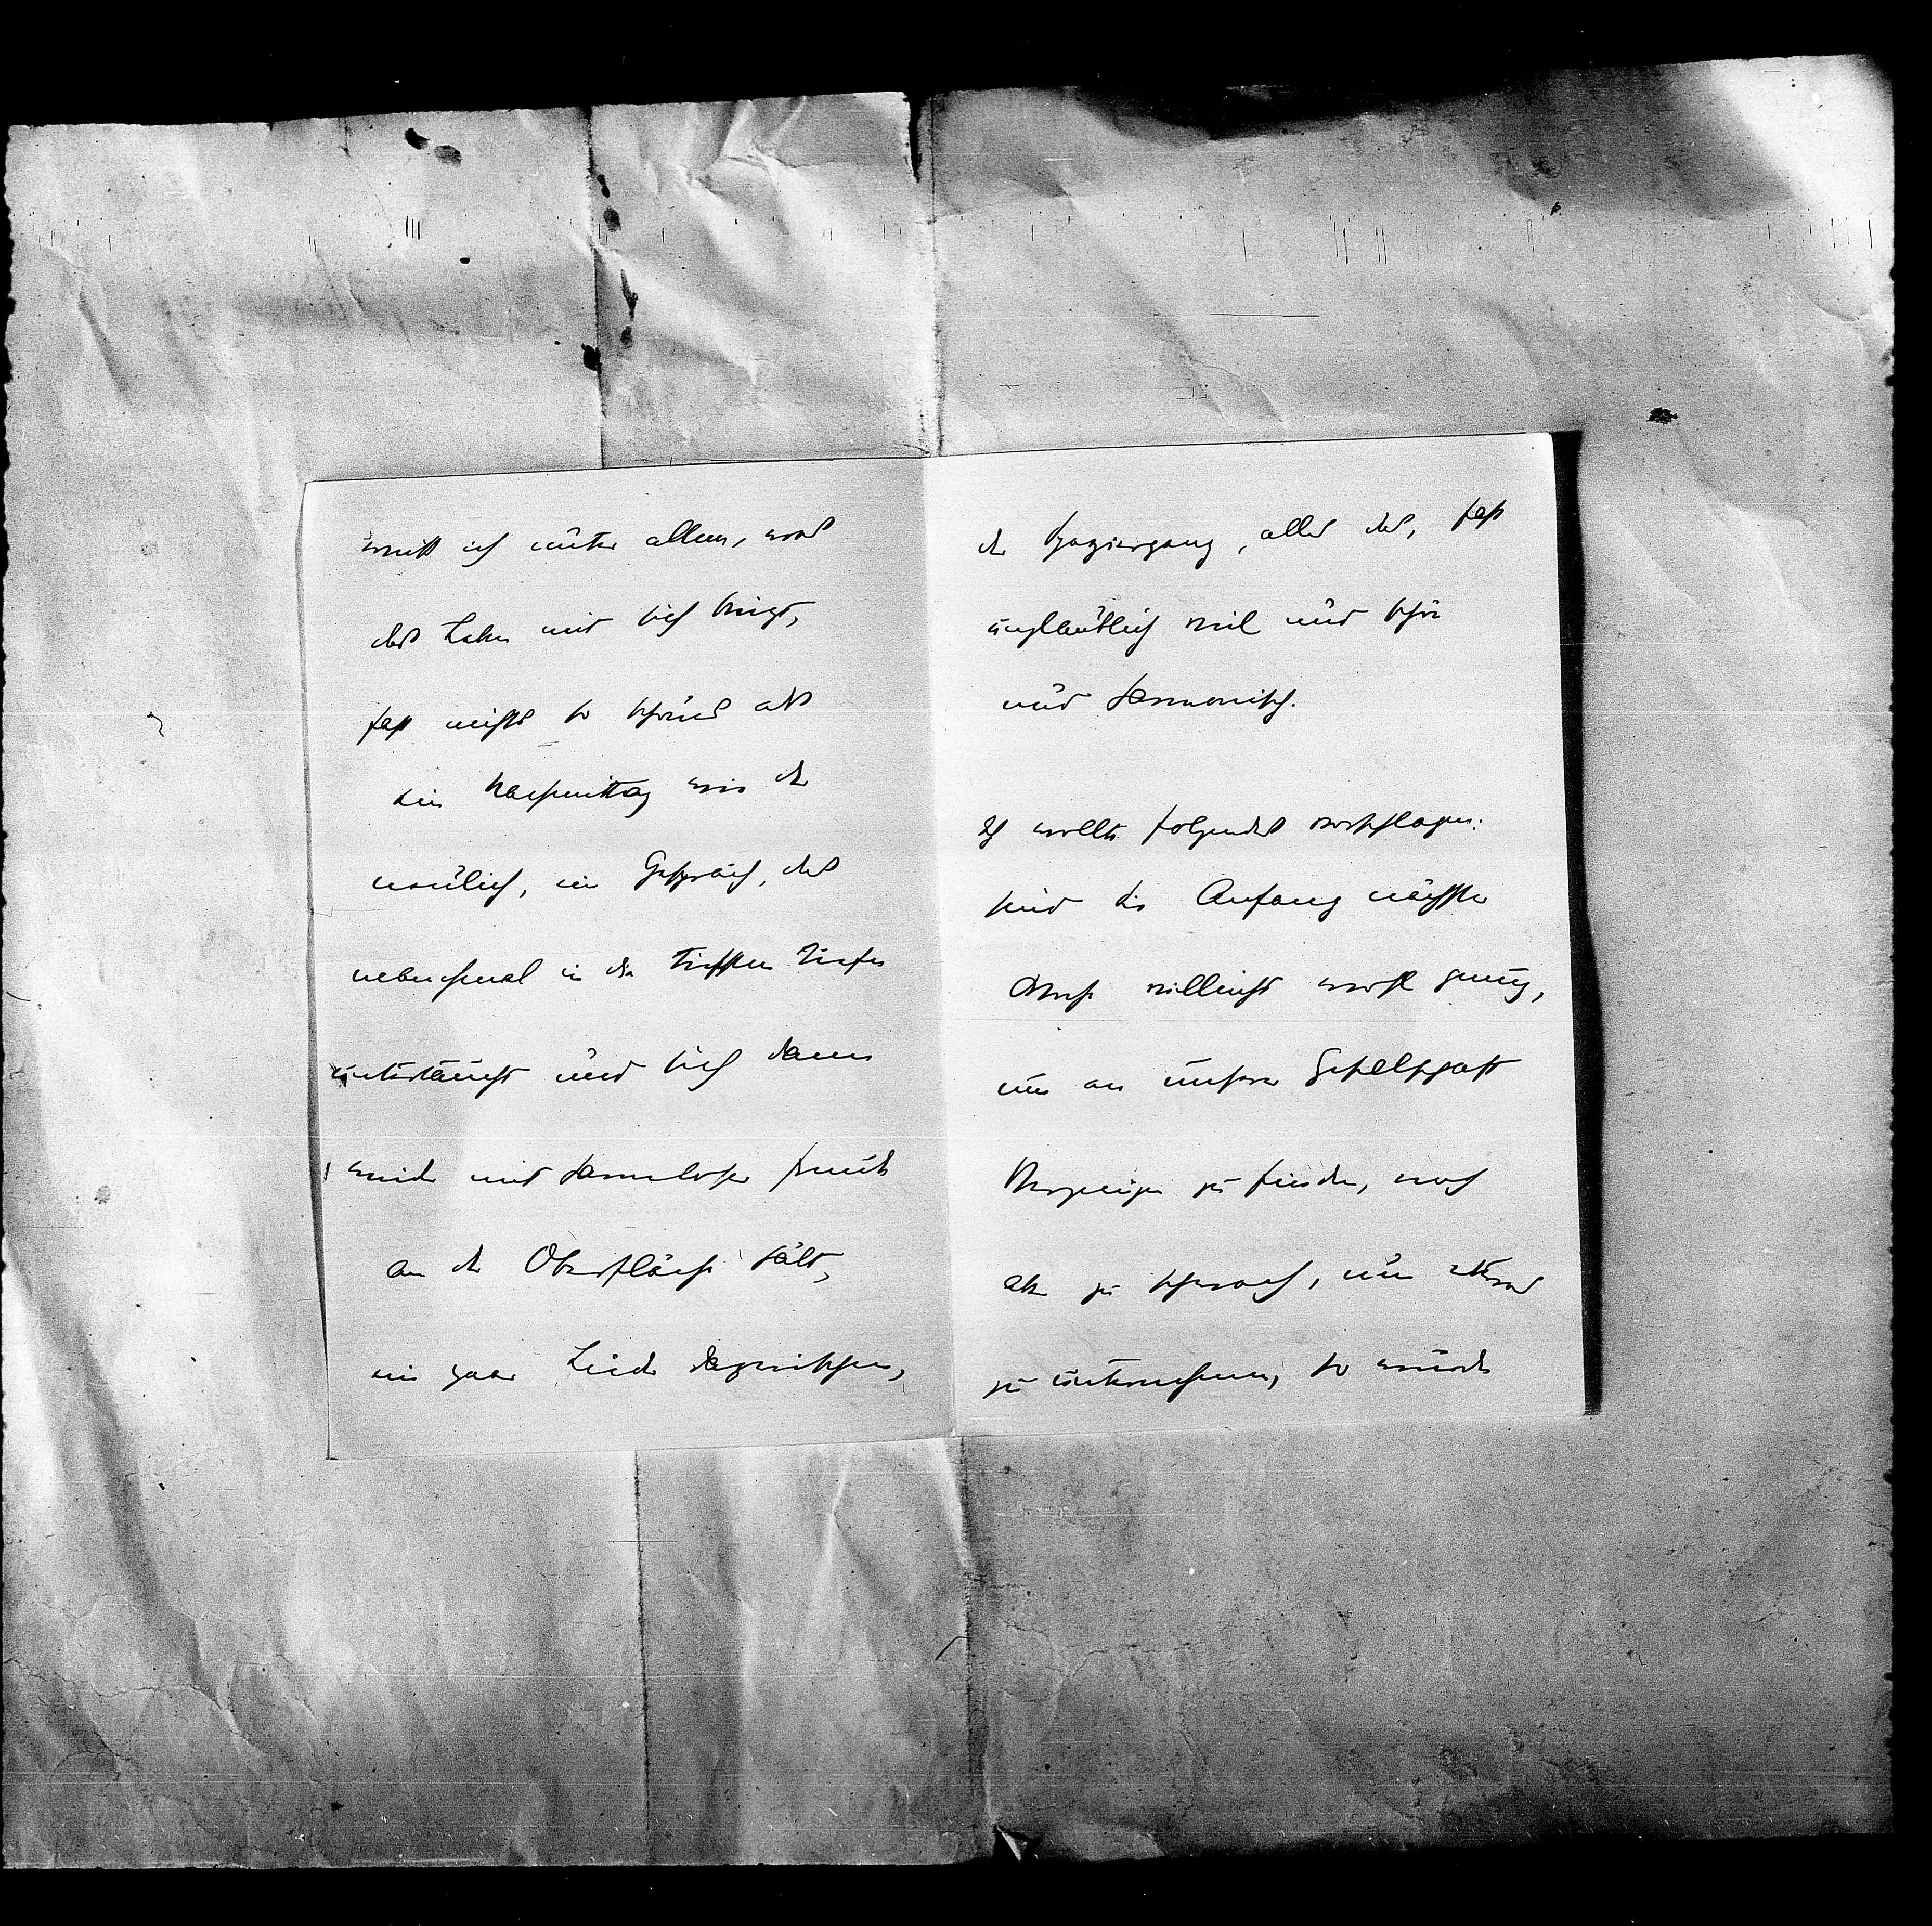 weiß ich unter allem, was
das Leben mit sich bringt,
fast nichts so schönes als
ein Nachmittag wie der
neulich, ein Gespräch, das
manchmal in die tiefsten Tiefen
untertaucht und sich dann
wieder mit harmloser Freude
an der Oberfläche hält,
ein paar Lieder dazwischen,
der Spaziergang, alles das, fast
unglaublich viel und schön
und harmonisch.
Ich wollte folgendes vorschlagen:
sind Sie Anfang nächster
Woche vielleicht wohl genug,
um an unserer Gesellschaft
Vergnügen zu finden, noch
aber zu schwach, um etwas
zu unternehmen, so würde